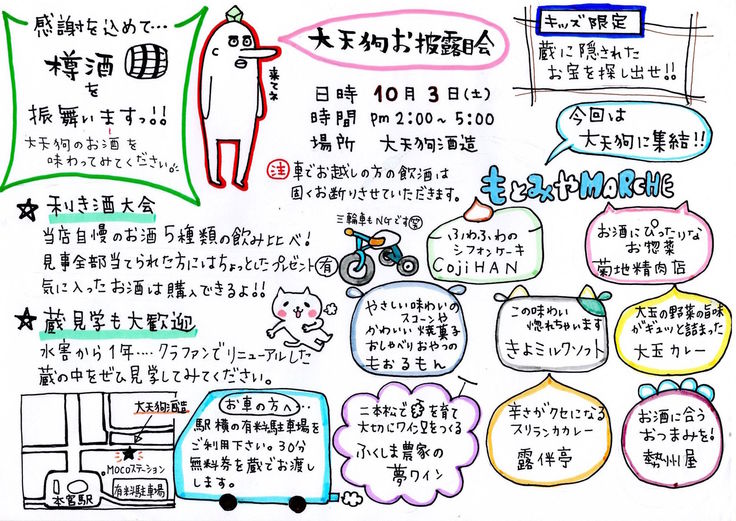 感謝を込めて…
樽酒
を
振舞いますっ!!
大天狗のお酒を
味わってみてください。
来てネ
大天狗お披露目会
日時 10月3日(土)
時間 pm 2:00~5:00
場所 大天狗酒造
注 車でお越しの方の飲酒は
固くお断りさせていただきます。
キッズ限定
蔵に隠された
お宝を探し出せ!!
今回は
大天狗に集結!!
もとみやMARCHE
☆利き酒大会
当店自慢のお酒5種類の飲み比べ!
見事全部当てられた方にはちょっとしたプレゼント有
気に入ったお酒は購入できるよ!!
三輪車もNGです笑
ふわふわの
シフォンケーキ
CojiHAN
お酒にぴったりな
お惣菜
菊地精肉店
☆蔵見学も大歓迎
水害から1年…. クラファンでリニューアルした
蔵の中をぜひ見学してみてください。
やさしい味わいの
スコーンや
かわいい焼菓子
おしゃべりおやつの
もおるもん
この味わい
惚れちゃいます
きよミルクソフト
大玉の野菜の旨味
がギュッと詰まった
大玉カレー
大天狗酒造
Mocoステーション
本宮駅
有料駐車場
お車の方へ…
駅横の有料駐車場を
ご利用下さい。30分
無料券を蔵でお渡し
します。
二本松で を育て
大切にワインをつくる
ふくしま農家の
夢ワイン
辛さがクセになる
スリランカカレー
露伴亭
お酒に合う
おつまみを!
勢州屋